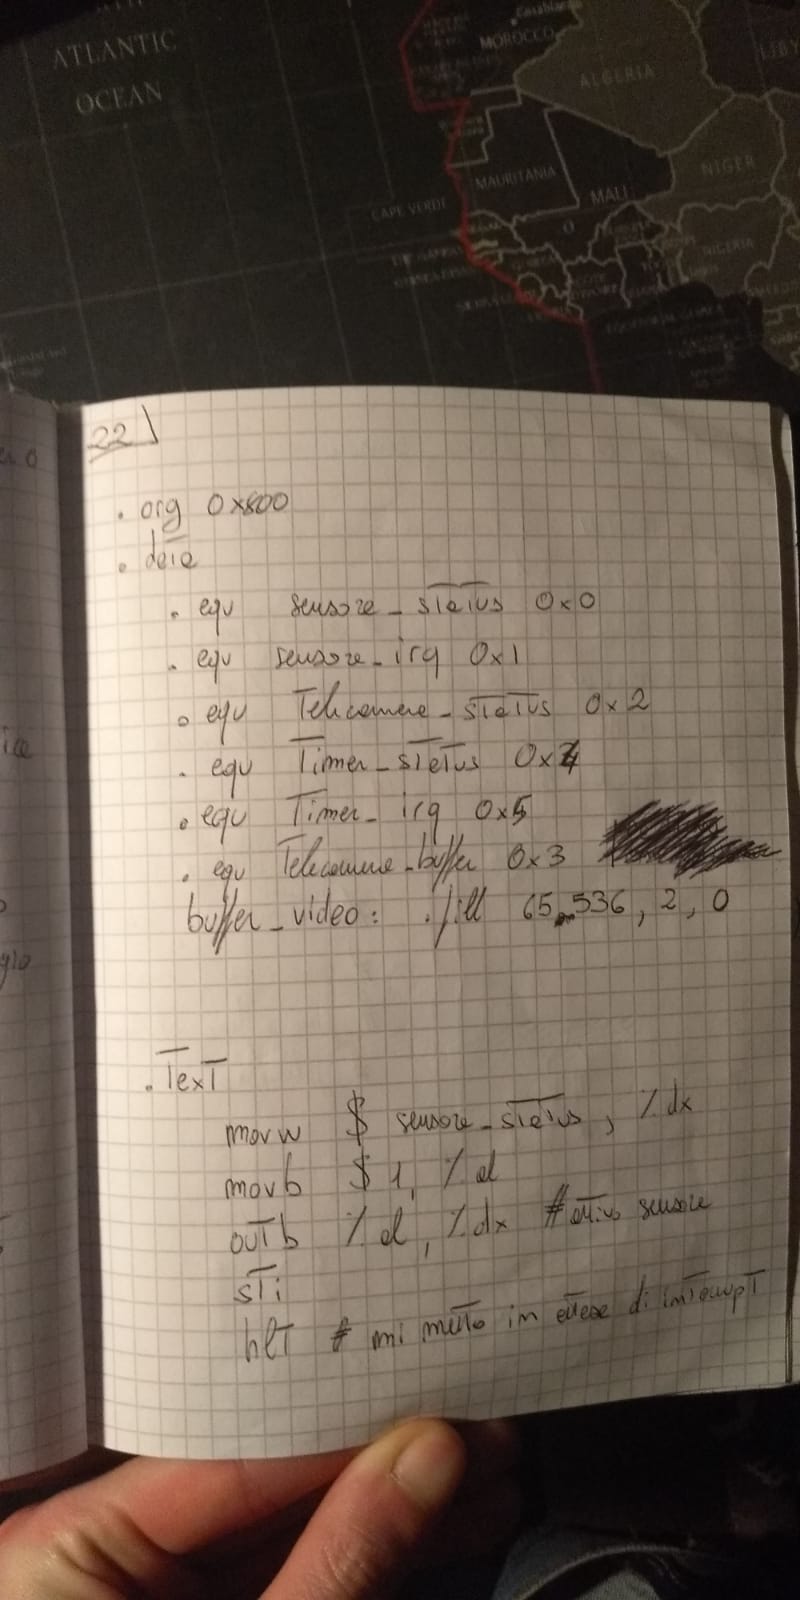 ATLANTIC
OCEAN
MOROCCO
ALGERIA
MAURITANIA
MALI
NIGER
CAPE VERDE
NIGERIA
22)
.org 0x800
.data
.equ sensore_status 0x0
.equ sensore_irq 0x1
.equ Telecamera_status 0x2
.equ Timer_status 0x4
.equ Timer_irq 0x5
.equ Telecamera_buffer 0x3
buffer_video: .fill 65536, 2, 0
.Text
movw $ sensore_status, %dx
movb $1, %al
outb %al, %dx #attivo sensore
sti
hlt # mi metto in attesa di interrupt